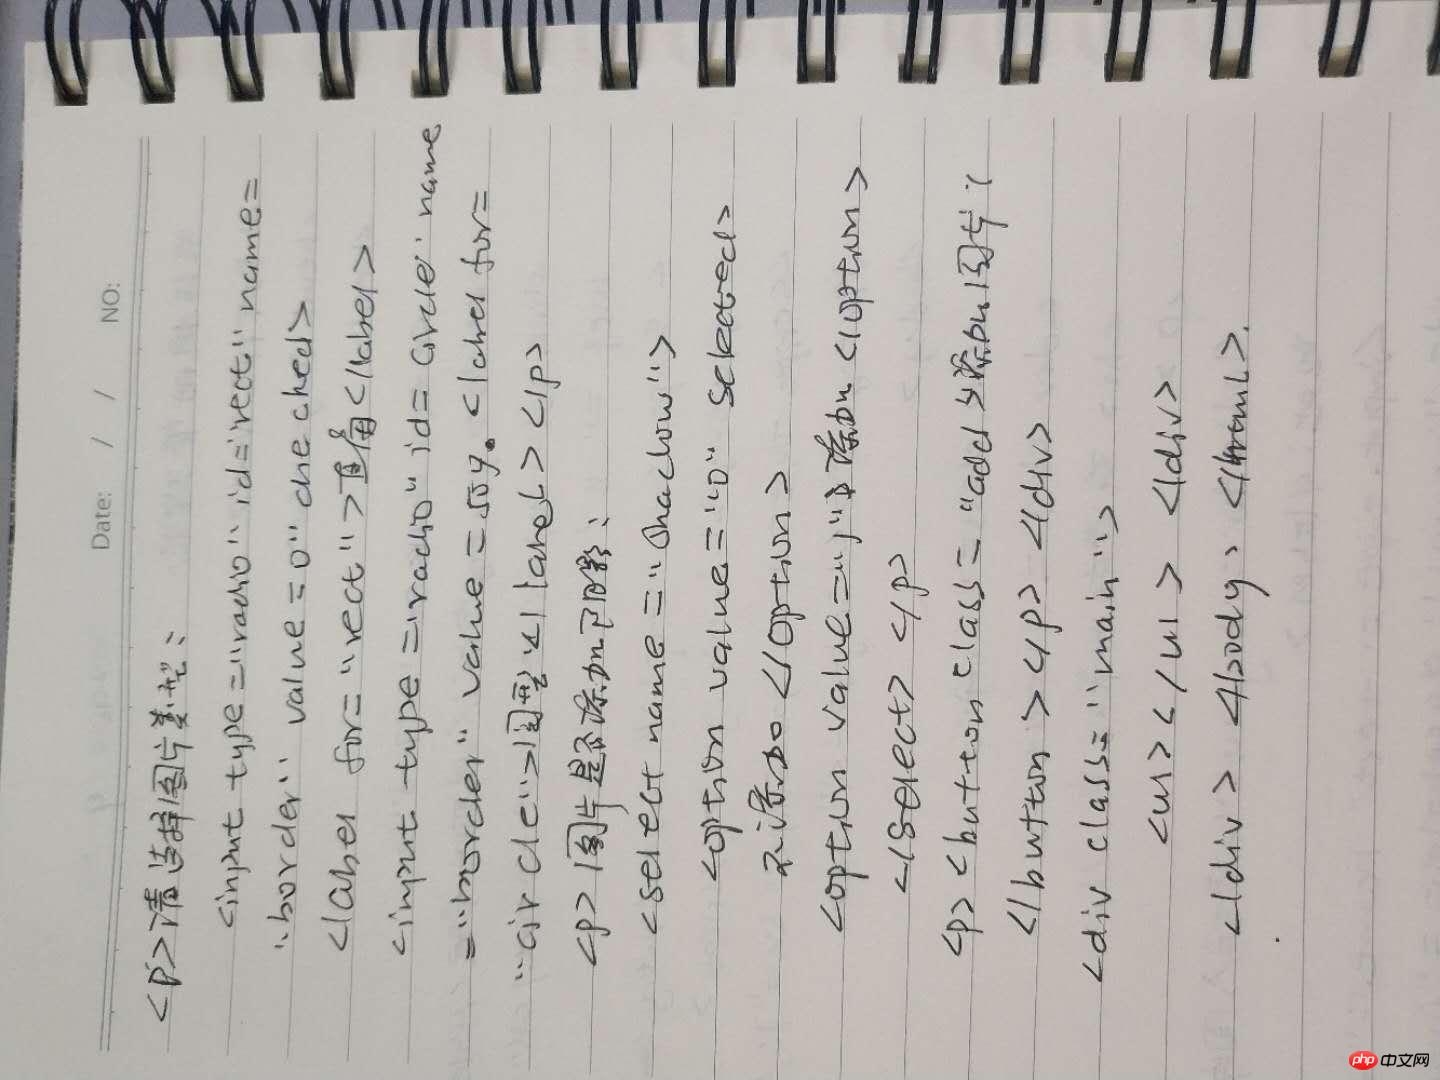 Date: / / NO:
<p>请选择图片类型:
<input type="radio" id="rect" name=
"border" value="0" checked>
<label for="rect">直角</label>
<input type="radio" id="circle" name
="border" value=50%. <label for=
"circle">圆型</label></p>
<p>图片是否添加阴影:
<select name="shadow">
<option value="0" selected>
不添加</option>
<option value="1">添加</option>
</select></p>
<p><button class="add">添加图片
</button></p></div>
<div class="main">
<ul></ul></div>
</div></body></html>
php 中文网